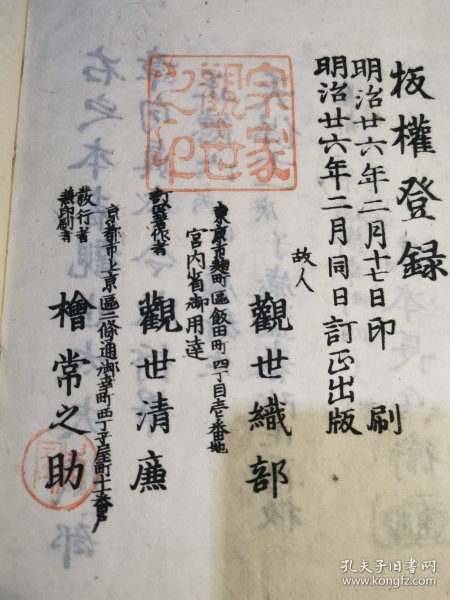 板權登録
明治廿六年二月十七日印刷
明治廿六年二月同日訂正出版
故人
觀世織部
東京市麹町區飯田町四丁目壱番地
宮内省御用達
訂正著作者
觀世清廉
京都市上京區二條通御幸町西丁子屋町十二番戸
發行者
兼印刷者
檜常之助
宗家
觀世
之印
孔夫子旧书网
www.kongfz.com